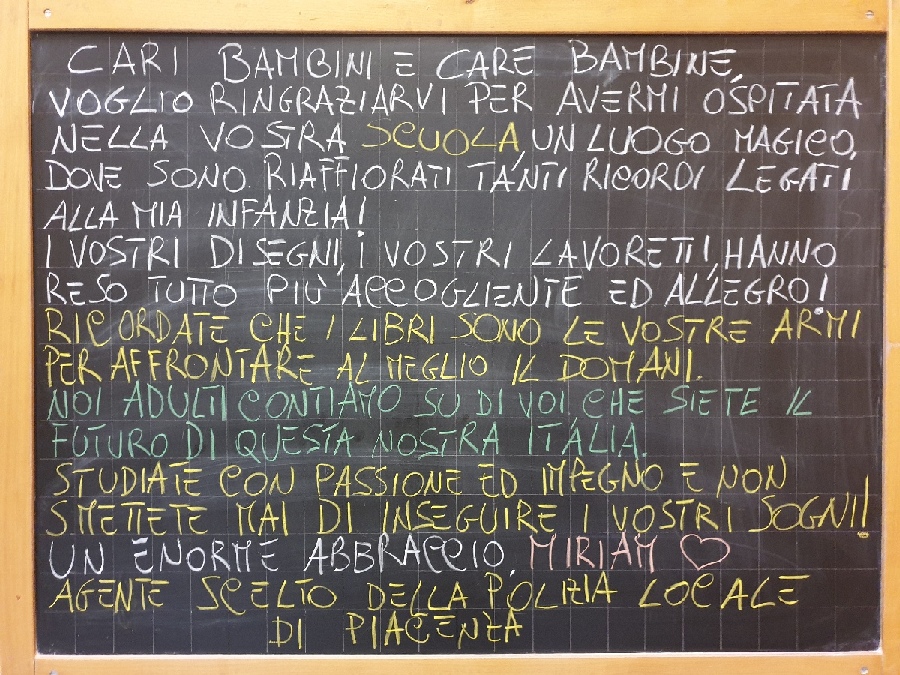 CARI BAMBINI E CARE BAMBINE,
VOGLIO RINGRAZIARVI PER AVERMI OSPITATA
NELLA VOSTRA SCUOLA, UN LUOGO MAGICO,
DOVE SONO RIAFFIORATI TANTI RICORDI LEGATI
ALLA MIA INFANZIA!
I VOSTRI DISEGNI, I VOSTRI LAVORETTI, HANNO
RESO TUTTO PIÙ ACCOGLIENTE ED ALLEGRO!
RICORDATE CHE I LIBRI SONO LE VOSTRE ARMI
PER AFFRONTARE AL MEGLIO IL DOMANI.
NOI ADULTI CONTIAMO SU DI VOI CHE SIETE IL
FUTURO DI QUESTA NOSTRA ITALIA.
STUDIATE CON PASSIONE ED IMPEGNO E NON
SMETTETE MAI DI INSEGUIRE I VOSTRI SOGNI!
UN ENORME ABBRACCIO, MIRIAM ♡
AGENTE SCELTO DELLA POLIZIA LOCALE
DI PIACENZA